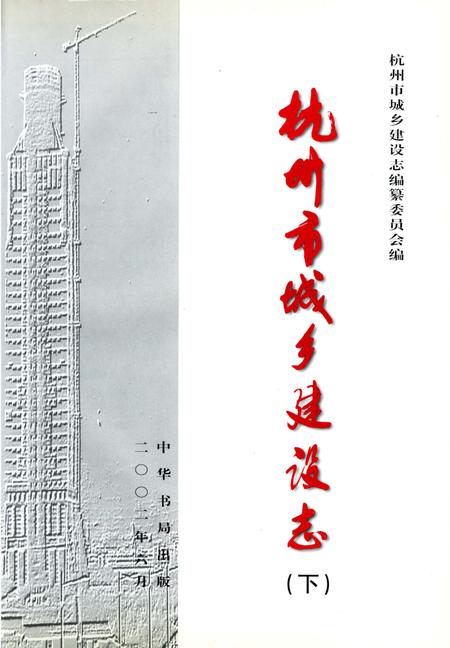 杭州市城乡建设志编纂委员会编
杭州市城乡建设志
(下)
中华书局出版
二〇〇二年六月